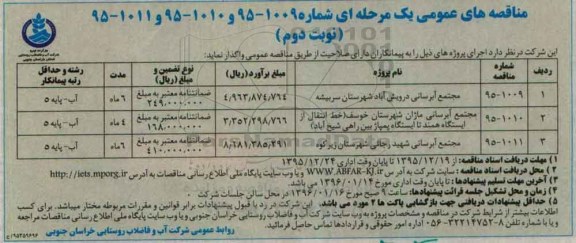 مناقصه های عمومی یک مرحله ای شماره ۱۰۰۹-۹۵ و ۱۰۱۰-۹۵ و ۱۰۱۱-۹۵
(نوبت دوم)
این شرکت در نظر دارد اجرای پروژه های ذیل را به پیمانکاران دارای صلاحیت از طریق مناقصه عمومی واگذار نماید:
ردیف شماره مناقصه نام پروژه مبلغ برآورد (ریال) نوع تضمین و مبلغ (ریال) مدت رشته و حداقل رتبه پیمانکار
۱ ۹۵-۱۰۰۹ مجتمع آبرسانی درویش آباد شهرستان سربیشه ۴,۹۶۳,۸۷۴,۷۶۴ ضمانتنامه معتبر به مبلغ ۲۴۹,۰۰۰,۰۰۰ ۶ ماه آب- پایه ۵
۲ ۹۵-۱۰۱۰ مجتمع آبرسانی ماژان شهرستان خوسف(خط انتقال از ایستگاه همند تا ایستگاه پمپاژ بین راهی شیخ آباد) ۳,۳۵۲,۲۹۸,۷۶۶ ضمانتنامه معتبر به مبلغ ۱۶۸,۰۰۰,۰۰۰ ۴ ماه آب- پایه ۵
۳ ۹۵-۱۰۱۱ مجتمع آبرسانی شهید رجائی شهرستان زیرکوه ۸,۶۸۱,۳۸۵,۲۹۰ ضمانتنامه معتبر به مبلغ ۴۱۰,۰۰۰,۰۰۰ ۶ ماه آب- پایه ۵
۱) مهلت دریافت اسناد مناقصه: از ۱۳۹۵/۱۲/۱۹ تا پایان وقت اداری ۱۳۹۵/۱۲/۲۴
۲) محل دریافت اسناد مناقصه: سایت شرکت به آدرس WWW.ABFAR-KJ.ir و یا وب سایت پایگاه ملی اطلاع رسانی مناقصات به آدرس http://iets.mporg.ir
۳) آخرین مهلت تسلیم پیشنهادها: تا پایان وقت اداری مورخ ۱۳۹۶/۰۱/۱۴ می باشد
۴) زمان و محل تشکیل جلسه قرائت پیشنهادها: ساعت ۹ صبح مورخ ۱۳۹۶/۰۱/۱۶ در محل سالن جلسات شرکت
۵) حداقل پیشنهادات دریافتی جهت بازگشایی پاکت ها ۲ مورد می باشد. این شرکت در رد یا قبول پیشنهادات برابر قوانین و مقررات مربوطه مختار میباشد. برای کسب
اطلاعات بیشتر از شرایط شرکت در مناقصه و مشخصات پروژه به وب سایت شرکت آب و فاضلاب روستایی خراسان جنوبی و یا وب سایت پایگاه ملی اطلاع رسانی مناقصات مراجعه
و یا با شماره تلفن ۸-۳۲۲۱۴۷۵۲-۰۵۶ اداره امور حقوقی و قراردادها تماس حاصل فرمائید.
روابط عمومی شرکت آب و فاضلاب روستایی خراسان جنوبی